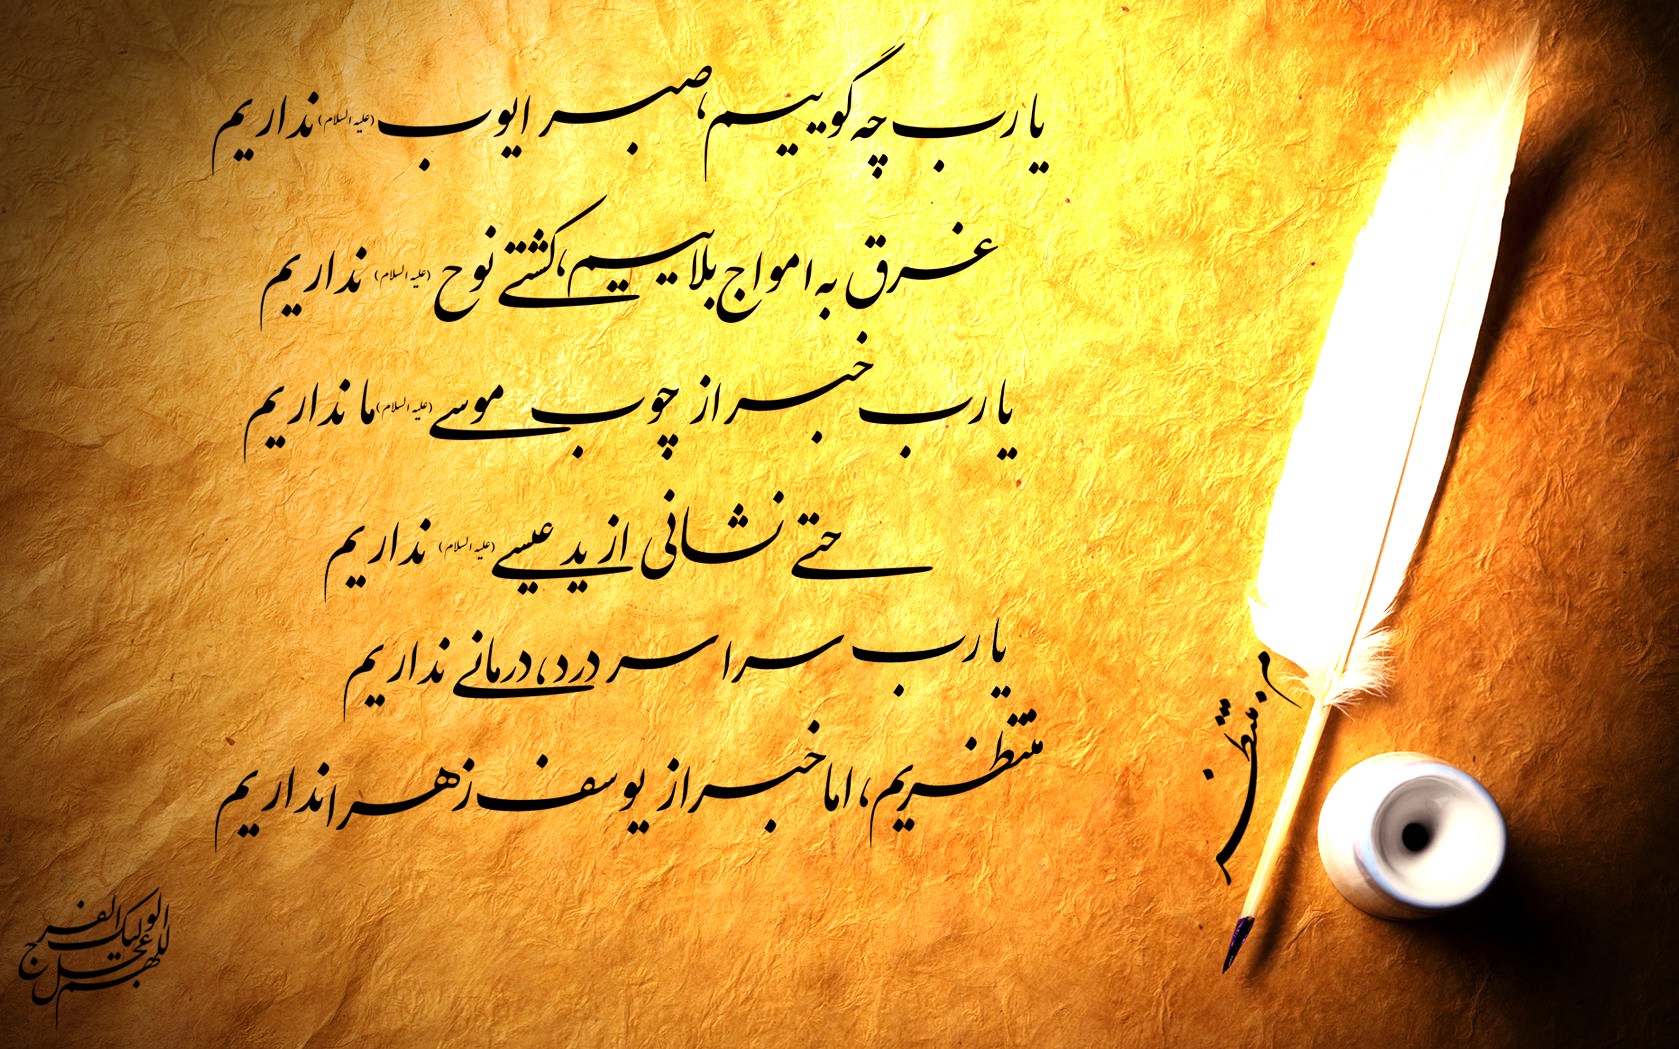 یا رب چه گوییم، صبر ایوب (علیه السلام) نداریم
غرق به امواج بلاییم، کشتی نوح (علیه السلام) نداریم
یا رب خبر از چوب موسی (علیه السلام) ما نداریم
حتی نشانی از ید عیسی (علیه السلام) نداریم
یا رب سراسر درد، درمانی نداریم
منتظریم، اما خبر از یوسف زهرا نداریم
منتظر
اللهم عجل لولیک الفرج